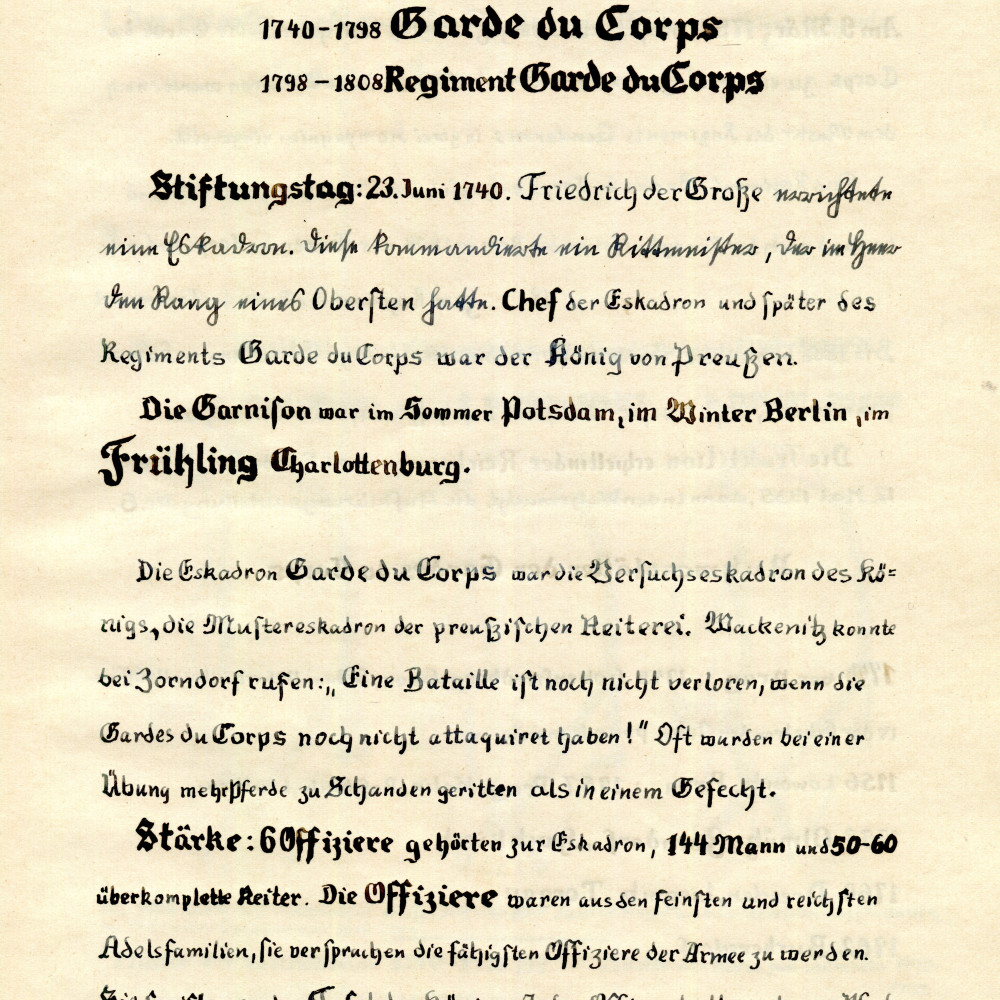 1740-1798 Garde du Corps
1798-1808 Regiment Garde du Corps
Stiftungstag: 23. Juni 1740. Friedrich der Große errichtete
eine Eskadron. Diese kommandierte ein Rittmeister, der im Heer
den Rang eines Obersten hatte. Chef der Eskadron und später des
Regiments Garde du Corps war der König von Preußen.
Die Garnison war im Sommer Potsdam, im Winter Berlin, im
Frühling Charlottenburg.
Die Eskadron Garde du Corps war die Versuchseskadron des Kö=
nigs, die Mustereskadron der preußischen Reiterei. Wackenitz konnte
bei Zorndorf rufen: „Eine Bataille ist noch nicht verloren, wenn die
Gardes du Corps noch nicht attaquiret haben!" Oft wurden bei einer
Übung mehr Pferde zu Schanden geritten als in einem Gefecht.
Stärke: 6 Offiziere gehörten zur Eskadron, 144 Mann und 50-60
überkomplette Reiter. Die Offiziere waren aus den feinsten und reichsten
Adelsfamilien, sie versprachen die fähigsten Offiziere der Armee zu werden.